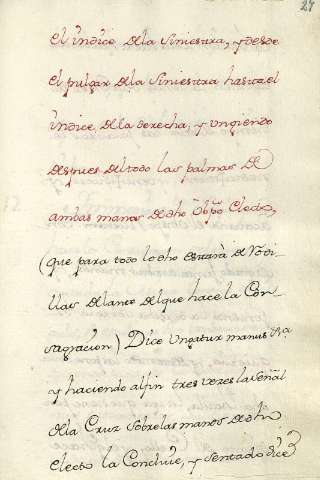 27
el indice de la siniestra, y desde
el pulgar de la siniestra hasta el
indice de la derecha, y ungiendo
despues del todo las palmas de
ambas manos de dho Obpo Electo,
(que para todo lo dho estará de Rodi-
llas delante del que hace la Con-
sagracion) Dice Ungatur manus ista
y haciendo al fin tres veces la señal
de la Cruz sobre las manos de dho
electo la Concluie, y sentado dice